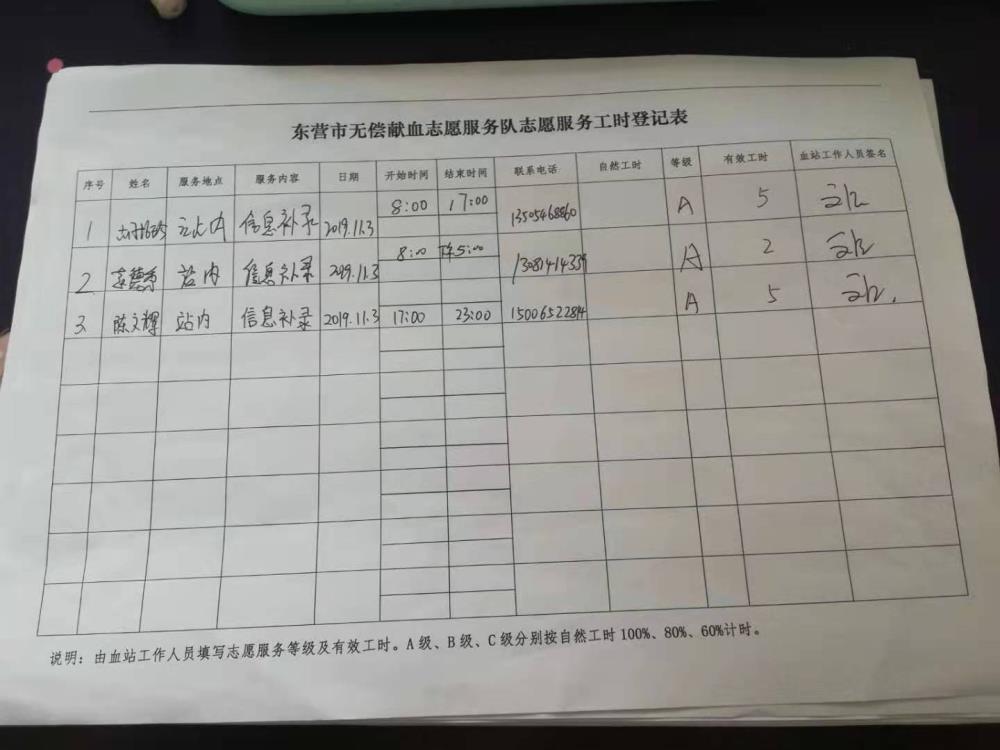 东营市无偿献血志愿服务队志愿服务工时登记表
序号 姓名 服务地点 服务内容 日期 开始时间 结束时间 联系电话 自然工时 等级 有效工时 血站工作人员签名
1 站内 信息补录 2019.11.3 8:00 17:00 13505468860 A 5
2 站内 信息补录 2019.11.3 8:00 5:00 A 2
3 陈文辉 站内 信息补录 2019.11.3 17:00 23:00 15006522814 A 5
说明：由血站工作人员填写志愿服务等级及有效工时。A 级、B 级、C 级分别按自然工时 100%、80%、60%计时。